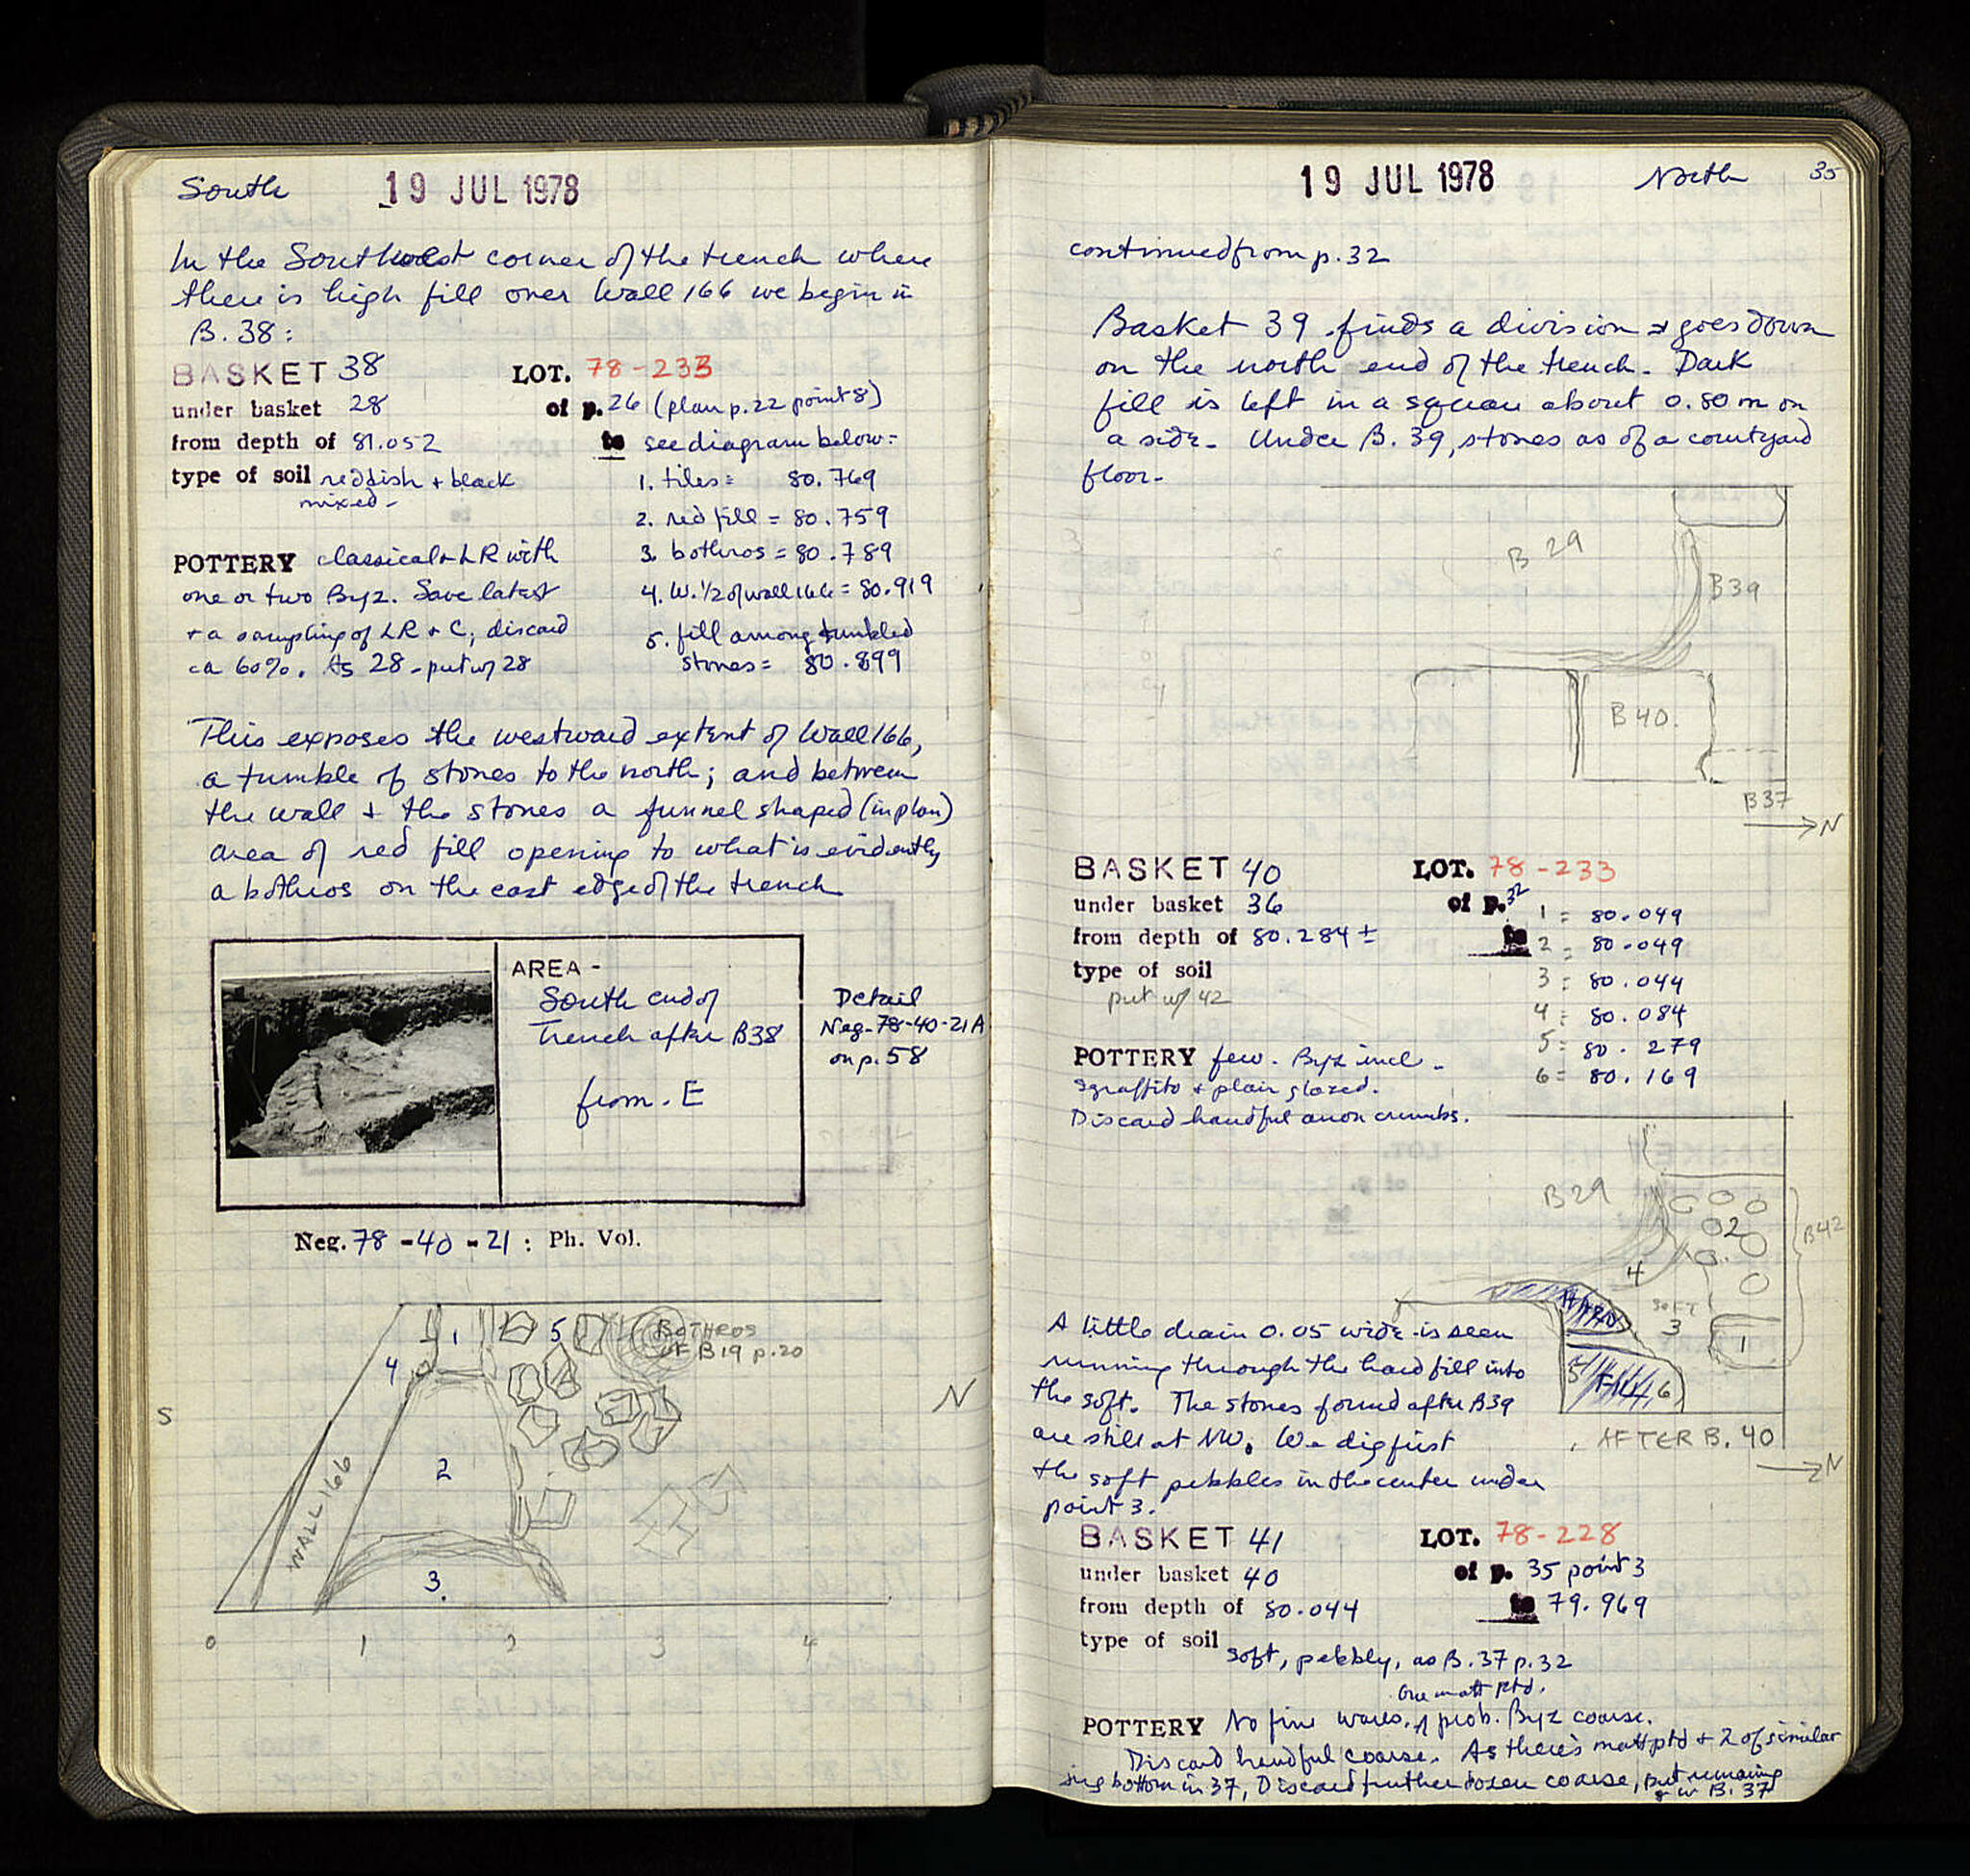 South 19 JUL 1978
In the Southwest corner of the trench where
there is high fill over Wall 166 we begin in
B. 38:
BASKET 38 LOT. 78-233
under basket 28 of p. 26 (plan p. 22 point 8)
from depth of 81.052 to see diagram below:
type of soil reddish + black
mixed -
1. tiles = 80.769
2. red fill = 80.759
3. bothros = 80.789
4. W. 1/2 of wall 166 = 80.919
5. fill among tumbled
stones = 80.899
POTTERY classical + LR with
one or two Byz. Save latest
+ a sampling of LR + C; discard
ca 60%. As 28 - put w/ 28
This exposes the westward extent of Wall 166,
a tumble of stones to the north; and between
the wall + the stones a funnel shaped (in plan)
area of red fill opening to what is evidently
a bothros on the east edge of the trench
AREA -
South end of
Trench after B38
from E
Detail
Neg-78-40-21A
on p. 58
Neg. 78-40-21 : Ph. Vol.
1 5 BOTHROS
OF B19 p. 20
4
S N
WALL 166
2
3.
0 1 2 3 4
19 JUL 1978 North 35
continued from p. 32
Basket 39 finds a division + goes down
on the north end of the trench. Dark
fill is left in a square about 0.80 m on
a side. Under B. 39, stones as of a courtyard
floor.
B 29
B39
B 40.
B37
N
BASKET 40 LOT. 78-233
under basket 36 of p. 32
from depth of 80.284 ± to
type of soil
put w/ 42
1 = 80.049
2 = 80.049
3 = 80.044
4 = 80.084
5 = 80.279
6 = 80.169
POTTERY few. Byz incl.
sgraffito + plain glazed.
Discard handful anon crumbs.
B29
2
B42
4
SOFT
3
1
HARD
5 FILL 6
AFTER B. 40
N
A little drain 0.05 wide is seen
running through the hard fill into
the soft. The stones found after B39
are still at NW. We dig first
the soft pebbles in the center under
point 3.
BASKET 41 LOT. 78-228
under basket 40 of p. 35 point 3
from depth of 80.044 to 79.969
type of soil soft, pebbly, as B. 37 p. 32
One matt ptd.
POTTERY No fine wares, prob. Byz coarse.
Discard handful coarse. As there's matt ptd + 2 of similar
jug bottom in 37, Discard further dozen coarse, put remaining
w B. 37